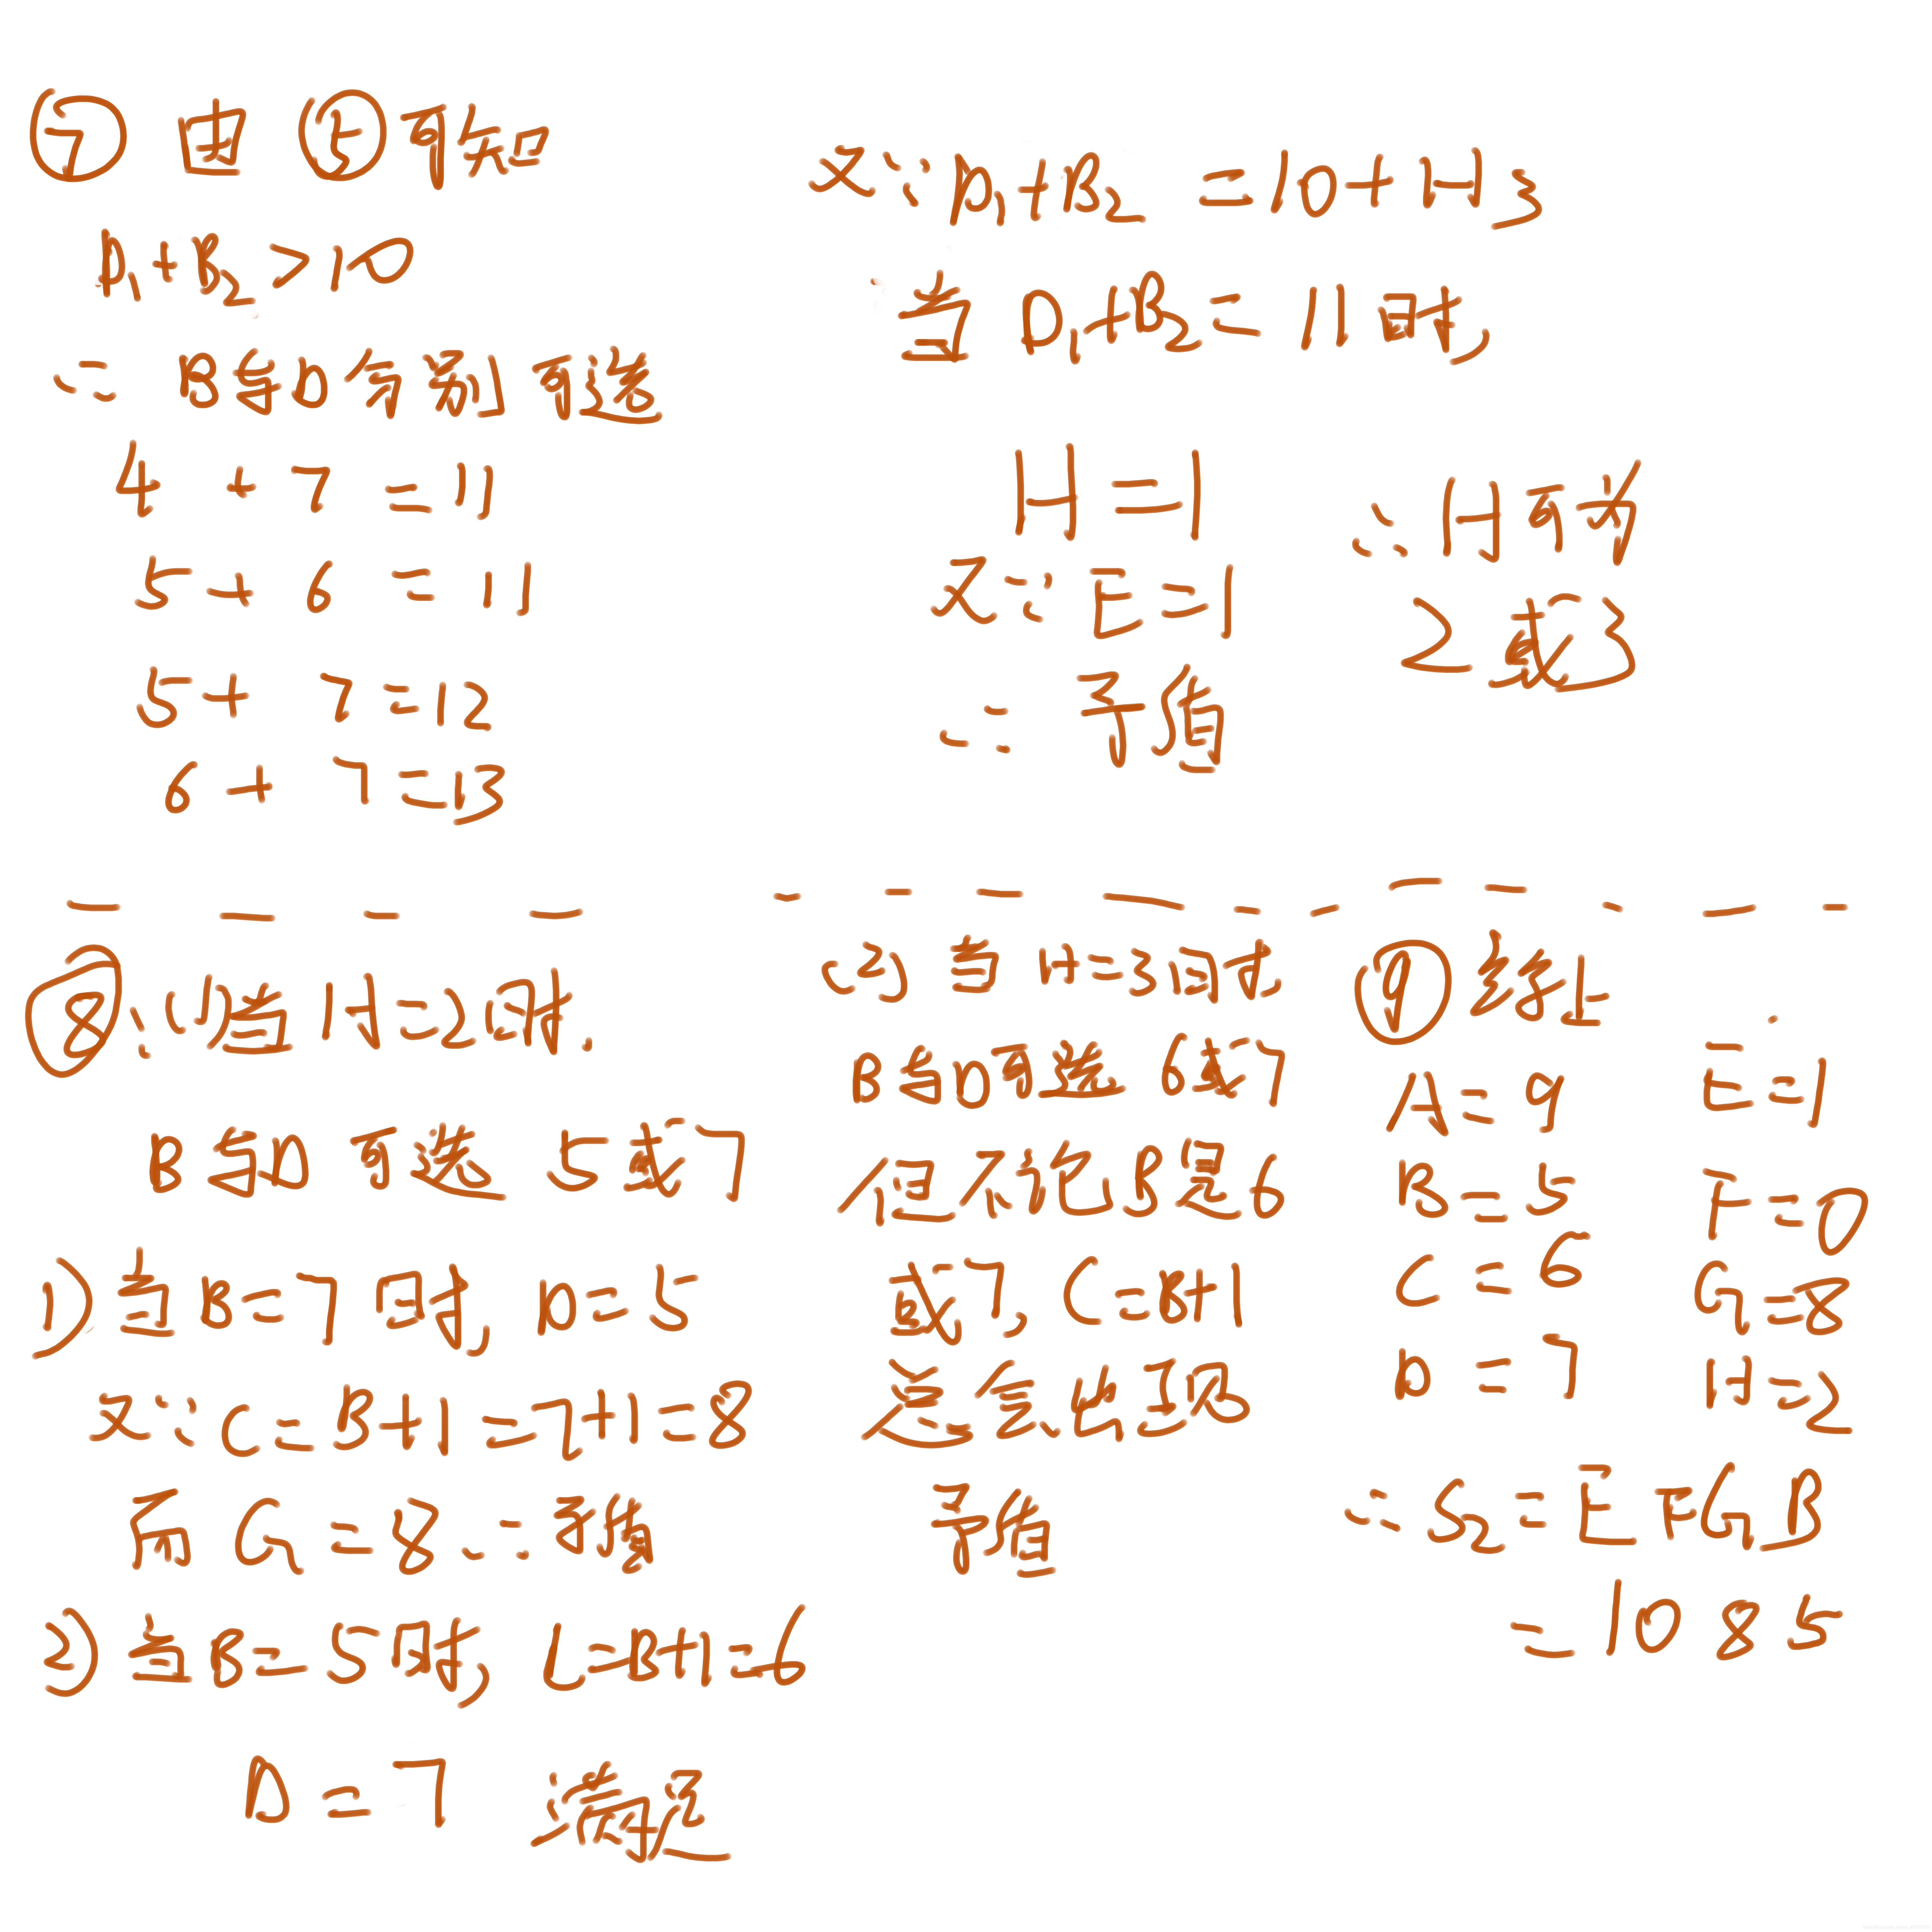 ⑦ 由⑤可知
D₁+B₂>10
∴ B与D有系列可选
4 + 7 = 11
5 + 6 = 11
5 + 7 = 12
6 + 7 = 13
又∵ D₁+B₂ = 10+H₃
当 D₁+B₂ = 11 时,
H = 1
又∵ E = 1
∴ 矛盾
∴ H可为
2或3
⑧:(1)当H=2时.
B与D可选 5或7
1)当B=7时, D=5
又∵ C=B+1=7+1=8
而 G=8 ∴ 矛盾
2)当B=5时, C=B+1=6
D=7 满足
(2)当H=3时,
B与D可选 6或7
但不论B是6
或7, C=B+1
总会出现
矛盾
⑨ 综上
A=9
B=5
C=6
D=7
E=1
F=0
G=8
H=2
∴ S₂=EFGB
=1085